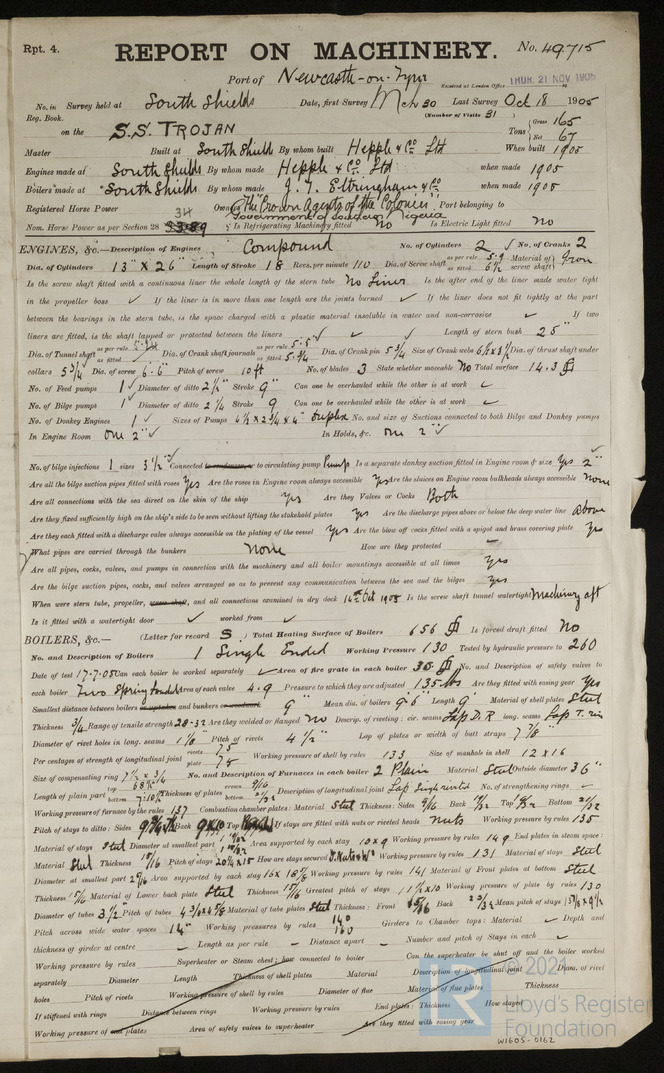 Rpt. 4. REPORT ON MACHINERY. No. 49715
Port of Newcastle-on-Tyne
Received at London Office THUR. 21 NOV 1905
No. in Survey held at South Shields Date, first Survey Mch 30 Last Survey Oct 18 1905
Reg. Book. (Number of Visits 31)
on the S.S. TROJAN Tons Gross 165 Net 67
Master Built at South Shields By whom built Hepple & Co Ltd When built 1905
Engines made at South Shields By whom made Hepple & Co Ltd when made 1905
Boilers made at South Shields By whom made J. T. Eltringham & Co when made 1905
Registered Horse Power Owners The Crown Agents of the Colonies Port belonging to
Government of Southern Nigeria
Nom. Horse Power as per Section 28 34 Is Refrigerating Machinery fitted No Is Electric Light fitted No
ENGINES, &c.—Description of Engines Compound No. of Cylinders 2 No. of Cranks 2
Dia. of Cylinders 13" X 26" Length of Stroke 18 Revs. per minute 110 Dia. of Screw shaft as per rule 5.9 as fitted 6½ Material of screw shaft Iron
Is the screw shaft fitted with a continuous liner the whole length of the stern tube No Liner Is the after end of the liner made water tight
in the propeller boss If the liner is in more than one length are the joints burned If the liner does not fit tightly at the part
between the bearings in the stern tube, is the space charged with a plastic material insoluble in water and non-corrosive If two
liners are fitted, is the shaft lapped or protected between the liners Length of stern bush 25"
Dia. of Tunnel shaft as per rule as fitted Dia. of Crank shaft journals as per rule 5.5 as fitted 5¾ Dia. of Crank pin 5¾ Size of Crank webs Dia. of thrust shaft under
collars 5¾ Dia. of screw 6.6 Pitch of screw 10ft No. of blades 3 State whether moveable No Total surface 14.3
No. of Feed pumps 1 Diameter of ditto 2¼ Stroke 9" Can one be overhauled while the other is at work
No. of Bilge pumps 1 Diameter of ditto 2¼ Stroke 9 Can one be overhauled while the other is at work
No. of Donkey Engines 1 Sizes of Pumps 4½ x 2¾ x 4" duplex No. and size of Suctions connected to both Bilge and Donkey pumps
In Engine Room One 2" In Holds, &c. One 2"
No. of bilge injections 1 sizes 3½" Connected to condenser, or to circulating pump Pump Is a separate donkey suction fitted in Engine room & size Yes 2"
Are all the bilge suction pipes fitted with roses Yes Are the roses in Engine room always accessible Yes Are the sluices on Engine room bulkheads always accessible None
Are all connections with the sea direct on the skin of the ship Yes Are they Valves or Cocks Both
Are they fixed sufficiently high on the ship's side to be seen without lifting the stokehold plates Yes Are the discharge pipes above or below the deep water line above
Are they each fitted with a discharge valve always accessible on the plating of the vessel Yes Are the blow off cocks fitted with a spigot and brass covering plate Yes
What pipes are carried through the bunkers None How are they protected
Are all pipes, cocks, valves, and pumps in connection with the machinery and all boiler mountings accessible at all times Yes
Are the bilge suction pipes, cocks, and valves arranged so as to prevent any communication between the sea and the bilges Yes
When were stern tube, propeller, screw shaft, and all connections examined in dry dock 14th Oct 1905 Is the screw shaft tunnel watertight Machinery aft
Is it fitted with a watertight door worked from
BOILERS, &c.— (Letter for record S) Total Heating Surface of Boilers 656 Is forced draft fitted No
No. and Description of Boilers 1 Single Ended Working Pressure 130 Tested by hydraulic pressure to 260
Date of test 17.7.05 Can each boiler be worked separately Area of fire grate in each boiler 35 No. and Description of safety valves to
each boiler Two Spring loaded Area of each valve 4.9 Pressure to which they are adjusted 135 lbs Are they fitted with easing gear Yes
Smallest distance between boilers or uptakes and bunkers or woodwork 9" Mean dia. of boilers 9'6" Length 9' Material of shell plates Steel
Thickness ¾ Range of tensile strength 28-32 Are they welded or flanged No Descrip. of riveting: cir. seams Lap D.R long. seams Lap T. riv
Diameter of rivet holes in long. seams 1⅛ Pitch of rivets 4½" Lap of plates or width of butt straps 7⅞"
Per centages of strength of longitudinal joint rivets 75 plate 75 Working pressure of shell by rules 133 Size of manhole in shell 12 x 16
Size of compensating ring No. and Description of Furnaces in each boiler 2 Plain Material Steel Outside diameter 36"
Length of plain part top bottom Thickness of plates crown 9/16 bottom Description of longitudinal joint Lap Single riveted No. of strengthening rings
Working pressure of furnace by the rules 137 Combustion chamber plates: Material Steel Thickness: Sides 9/16 Back Top Bottom
Pitch of stays to ditto: Sides Back 9x10 Top If stays are fitted with nuts or riveted heads Nuts Working pressure by rules 135
Material of stays Steel Diameter at smallest part Area supported by each stay 10x9 Working pressure by rules 149 End plates in steam space:
Material Steel Thickness 15/16 Pitch of stays How are stays secured Working pressure by rules 131 Material of stays Steel
Diameter at smallest part Area supported by each stay Working pressure by rules 141 Material of Front plates at bottom Steel
Thickness 15/16 Material of Lower back plate Steel Thickness 15/16 Greatest pitch of stays Working pressure of plate by rules 130
Diameter of tubes 3½" Pitch of tubes Material of tube plates Steel Thickness: Front 15/16 Back Mean pitch of stays
Pitch across wide water spaces 14" Working pressures by rules 140 160 Girders to Chamber tops: Material Depth and
thickness of girder at centre Length as per rule Distance apart Number and pitch of Stays in each
Working pressure by rules Superheater or Steam chest; how connected to boiler Can the superheater be shut off and the boiler worked
separately Diameter Length Thickness of shell plates Material Description of longitudinal joint Diam. of rivet
holes Pitch of rivets Working pressure of shell by rules Diameter of flue Material of flue plates Thickness
If stiffened with rings Distance between rings Working pressure by rules End plates: Thickness How stayed
Working pressure of end plates Area of safety valves to superheater Are they fitted with easing gear
© 2021
Lloyd's Register
Foundation
W1605-0162